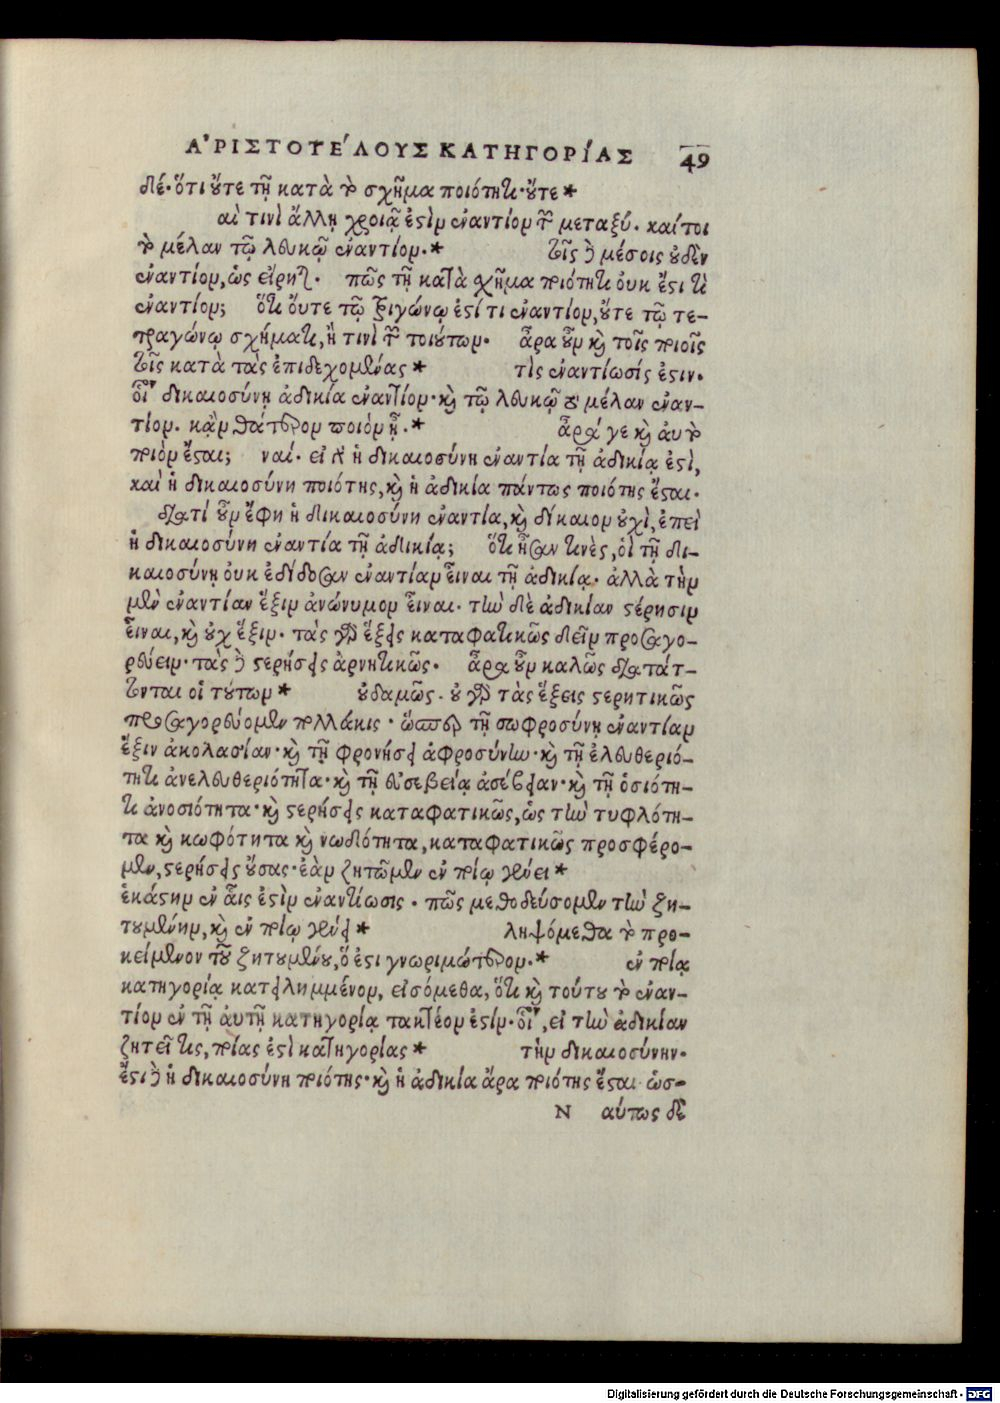 ἈΡΙΣΤΟΤΈΛΟΥΣ ΚΑΤΗΓΟΡΊΑΣ 49
δέ· ὅτι οὔτε τῇ κατὰ τὸ σχῆμα ποιότητι· οὔτε *
αἱ τινὶ ἄλλῃ χροιᾷ ἐστὶν ἐναντίον τῶν μεταξύ. καίτοι
τὸ μέλαν τῷ λευκῷ ἐναντίον. * τοῖς δὲ μέσοις οὐδὲν
ἐναντίον, ὡς εἴρηται. πῶς τῇ κατὰ σχῆμα ποιότητι οὐκ ἔστι τὶ
ἐναντίον; ὅτι οὔτε τῷ τριγώνῳ ἐστί τι ἐναντίον, οὔτε τῷ τε-
τραγώνῳ σχήματι, ἤ τινι τῶν τοιούτων. ἆρα οὖν καὶ τοῖς ποιοῖς
τοῖς κατὰ τὰς ἐπιδεχομένας * τὶς ἐναντίωσίς ἐστιν.
οἷον δικαιοσύνῃ ἀδικία ἐναντίον· καὶ τῷ λευκῷ τὸ μέλαν ἐναν-
τίον. κἂν θάτερον ποιὸν ᾖ. * ἆρά γε καὶ αὐτὸ
ποιὸν ἔσται; ναί. εἰ γὰρ ἡ δικαιοσύνη ἐναντία τῇ ἀδικίᾳ ἐστὶ,
καὶ ἡ δικαιοσύνη ποιότης, καὶ ἡ ἀδικία πάντως ποιότης ἔσται.
διατί οὖν ἔφη ἡ δικαιοσύνη ἐναντία, καὶ δίκαιον οὐχὶ, ἐπεὶ
ἡ δικαιοσύνη ἐναντία τῇ ἀδικίᾳ; ὅτι ἦσαν τινὲς, οἱ τῇ δι-
καιοσύνῃ οὐκ ἐδίδοσαν ἐναντίαν εἶναι τῇ ἀδικίᾳ. ἀλλὰ τὴν
μὲν ἐναντίαν ἕξιν ἀνώνυμον εἶναι. τὴν δὲ ἀδικίαν στέρησιν
εἶναι, καὶ οὐχ ἕξιν. τὰς γὰρ ἕξεις καταφατικῶς δεῖν προσαγο-
ρεύειν· τὰς δὲ στερήσεις ἀρνητικῶς. ἆρα οὖν καλῶς διατάτ-
τονται οἱ τούτων * οὐδαμῶς. οὐ γὰρ τὰς ἕξεις στερητικῶς
προσαγορεύομεν πολλάκις· ὥσπερ τῇ σωφροσύνῃ ἐναντίαν
ἕξιν ἀκολασίαν· καὶ τῇ φρονήσει ἀφροσύνην· καὶ τῇ ἐλευθεριό-
τητι ἀνελευθεριότητα· καὶ τῇ εὐσεβείᾳ ἀσέβειαν· καὶ τῇ ὁσιότη-
τι ἀνοσιότητα· καὶ στερήσεις καταφατικῶς, ὡς τὴν τυφλότη-
τα καὶ κωφότητα καὶ νωδότητα, καταφατικῶς προσφέρο-
μεν, στερήσεις οὔσας· ἐὰν ζητῶμεν ἐν ποίῳ γένει *
ἑκάστην ἐν αἷς ἐστὶν ἐναντίωσις. πῶς μεθοδεύσομεν τὴν ζη-
τουμένην, καὶ ἐν ποίῳ γένει * ληψόμεθα τὸ προ-
κείμενον τοῦ ζητουμένου, ὅ ἐστι γνωριμώτερον. * ἐν ποίᾳ
κατηγορίᾳ κατειλημμένον, εἰσόμεθα, ὅτι καὶ τούτου τὸ ἐναν-
τίον ἐν τῇ αὐτῇ κατηγορίᾳ τακτέον ἐστίν. οἷον, εἰ τὴν ἀδικίαν
ζητεῖ τις, ποίας ἐστὶ κατηγορίας * τὴν δικαιοσύνην.
ἔστι δὲ ἡ δικαιοσύνη ποιότης· καὶ ἡ ἀδικία ἄρα ποιότης ἔσται. ὡσ-
N αύτως δὲ
Digitalisierung gefördert durch die Deutsche Forschungsgemeinschaft - DFG